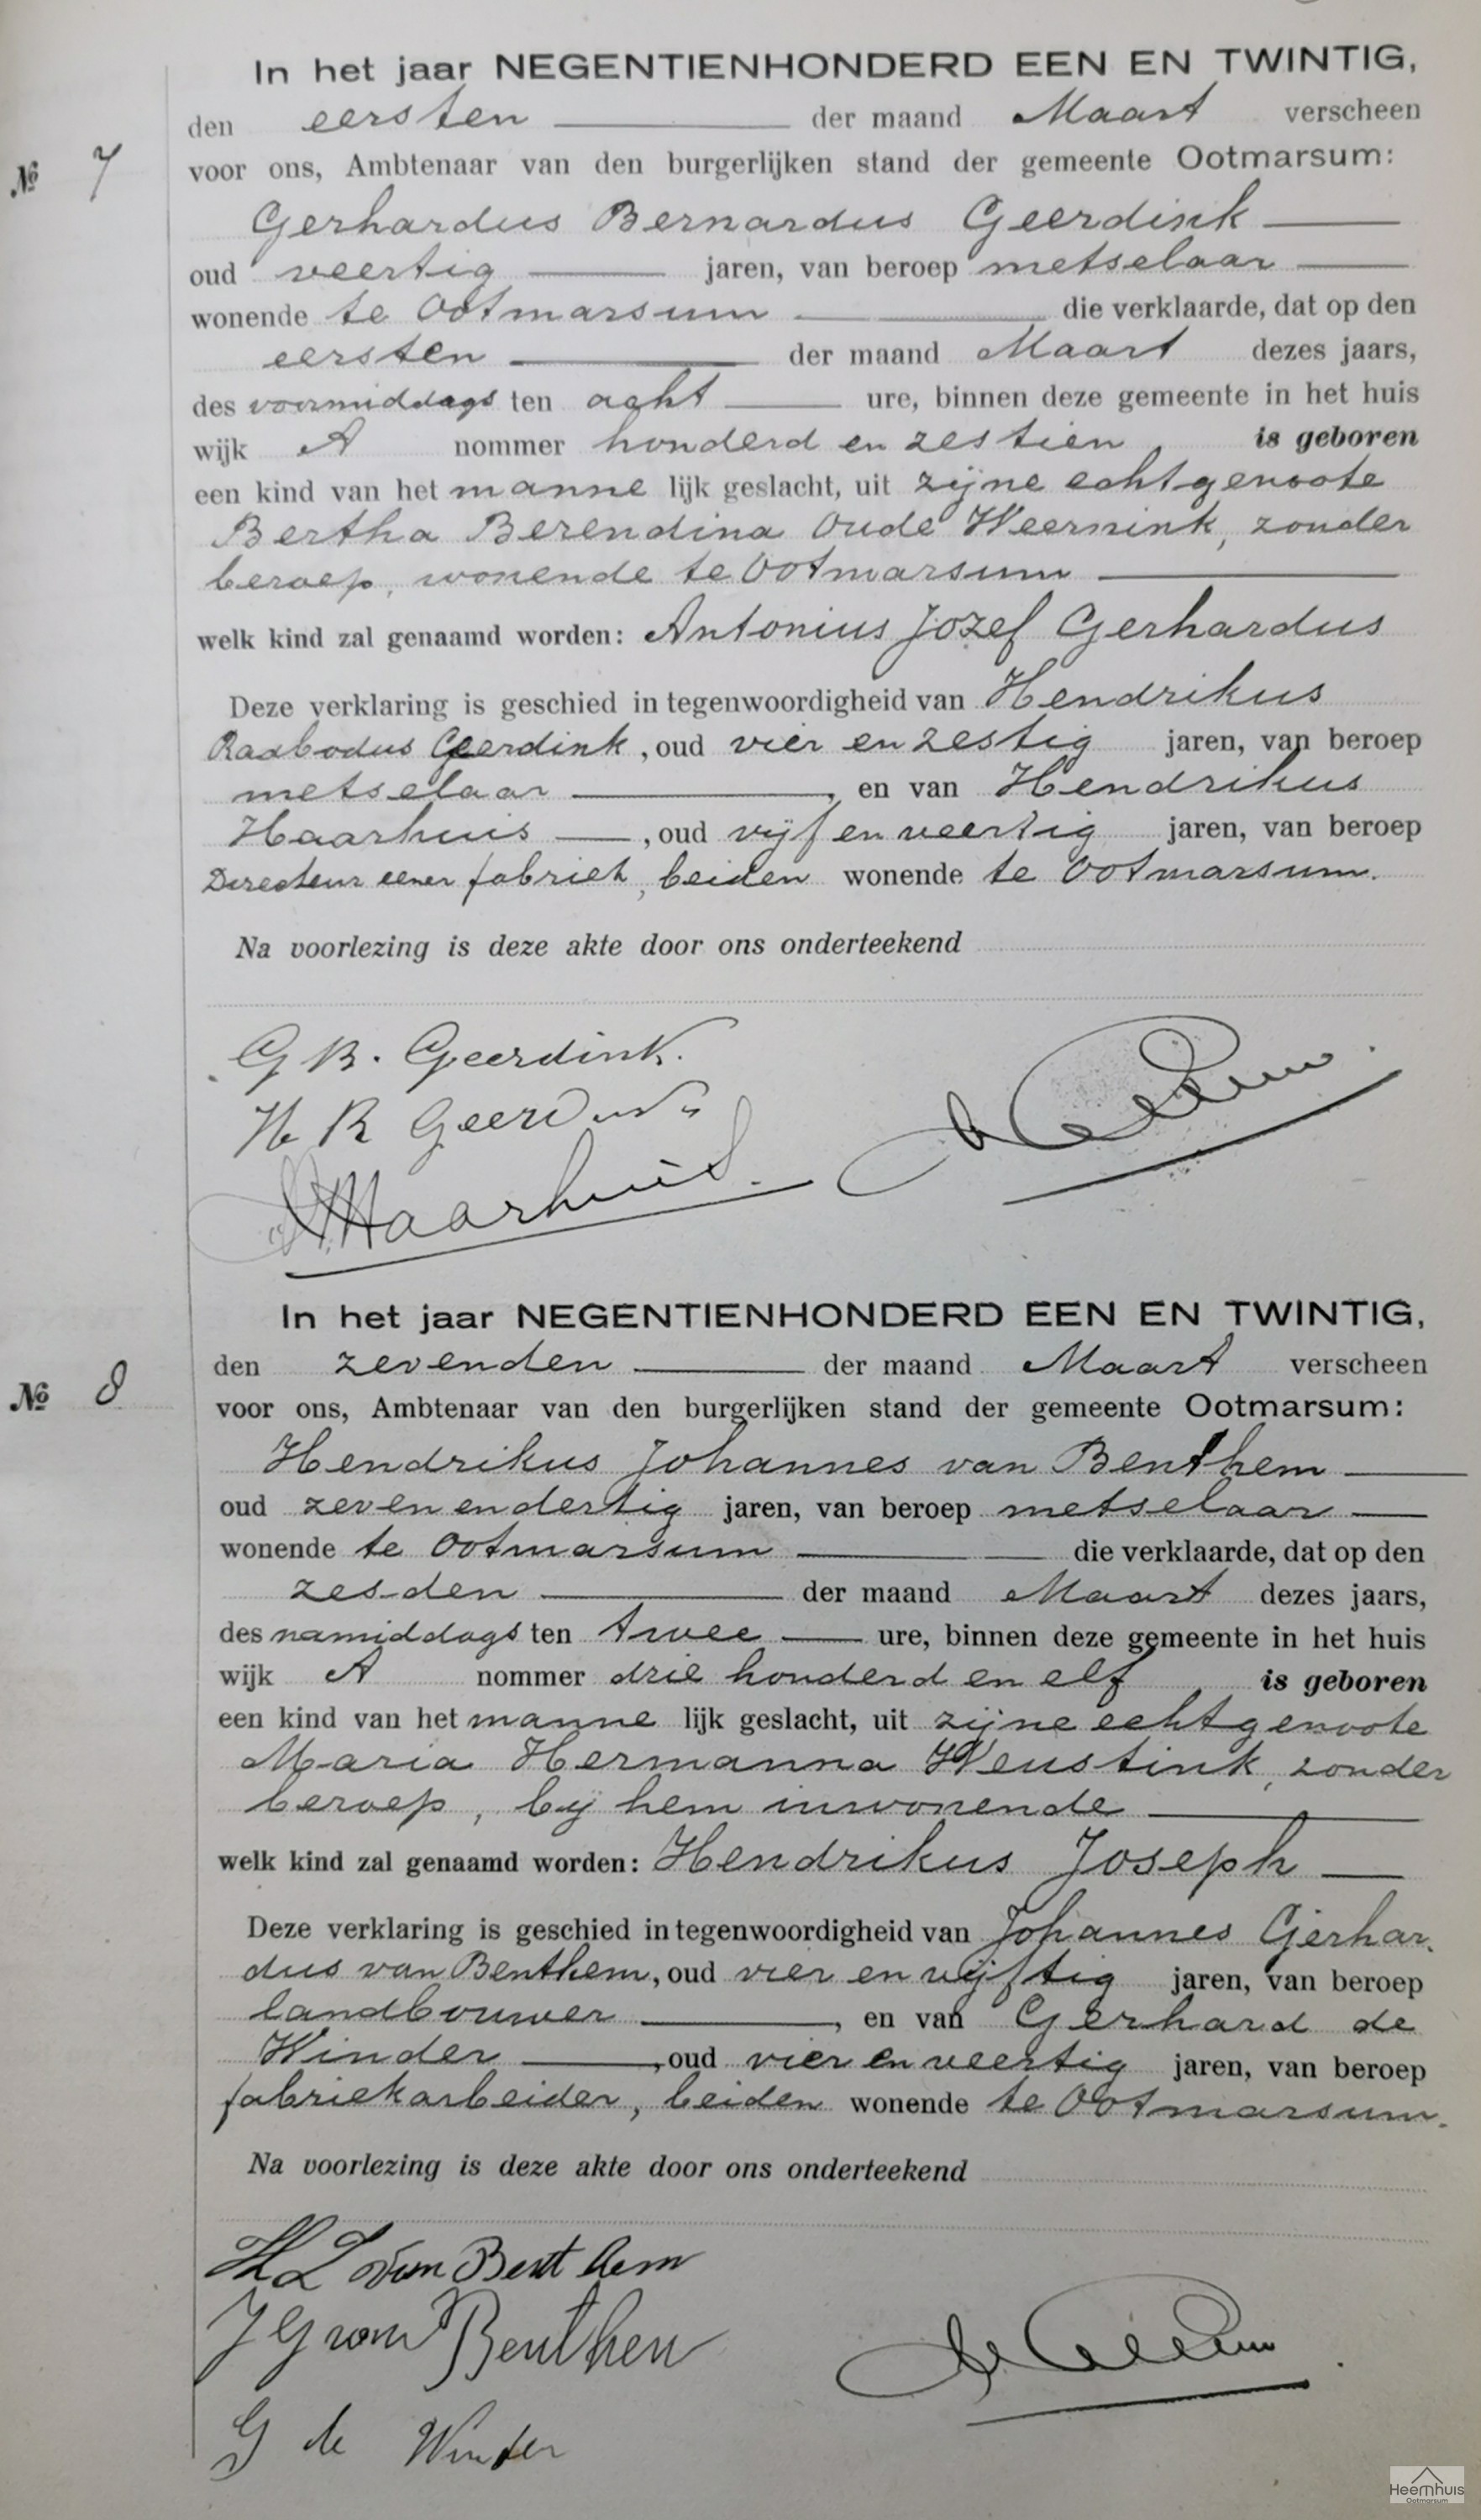 In het jaar NEGENTIENHONDERD EEN EN TWINTIG,
den eersten der maand Maart verscheen
№ 7
voor ons, Ambtenaar van den burgerlijken stand der gemeente Ootmarsum:
Gerhardus Bernardus Geerdink
oud veertig jaren, van beroep metselaar
wonende te Ootmarsum die verklaarde, dat op den
eersten der maand Maart dezes jaars,
des voormiddags ten acht ure, binnen deze gemeente in het huis
wijk A nommer honderd en zestien, is geboren
een kind van het manne lijk geslacht, uit zijne echtgenoote
Bertha Berendina Oude Weernink, zonder
beroep, wonende te Ootmarsum
welk kind zal genaamd worden: Antonius Jozef Gerhardus
Deze verklaring is geschied in tegenwoordigheid van Hendrikus
Radbodus Geerdink, oud vier en zestig jaren, van beroep
metselaar, en van Hendrikus
Haarhuis, oud vijf en veertig jaren, van beroep
Directeur eener fabriek, beiden wonende te Ootmarsum.
Na voorlezing is deze akte door ons onderteekend
G B. Geerdink.
H R Geerdink
Haarhuis.
In het jaar NEGENTIENHONDERD EEN EN TWINTIG,
den zevenden der maand Maart verscheen
№ 8
voor ons, Ambtenaar van den burgerlijken stand der gemeente Ootmarsum:
Hendrikus Johannes van Benthem
oud zeven en dertig jaren, van beroep metselaar
wonende te Ootmarsum die verklaarde, dat op den
zesden der maand Maart dezes jaars,
des namiddags ten twee ure, binnen deze gemeente in het huis
wijk A nommer drie honderd en elf is geboren
een kind van het manne lijk geslacht, uit zijne echtgenoote
Maria Hermanna Weustink, zonder
beroep, bij hem inwonende
welk kind zal genaamd worden: Hendrikus Joseph
Deze verklaring is geschied in tegenwoordigheid van Johannes Gerhar-
dus van Benthem, oud vier en vijftig jaren, van beroep
landbouwer, en van Gerhard de
Winder, oud vier en veertig jaren, van beroep
fabriekarbeider, beiden wonende te Ootmarsum.
Na voorlezing is deze akte door ons onderteekend
van Benthem
J G van Benthem
G de Winder
Heemhuis
Ootmarsum